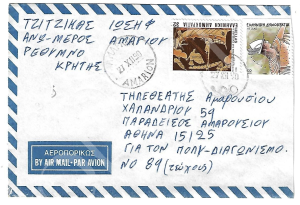 ΤΖΙΤΖΙΚΑΣ ΙΩΣΗΦ
ΑΝΩ-ΜΕΡΟΣ ΑΜΑΡΙΟΥ
ΡΕΘΥΜΝΟ
ΚΡΗΤΗΣ
ΕΛΛΗΝΙΚΗ ΔΗΜΟΚΡΑΤΙΑ
ΤΗΛΕΘΕΑΤΗΣ Αμαρουσίου
ΧΑΛΑΝΔΡΙΟΥ 59
ΠΑΡΑΔΕΙΣΟΣ ΑΜΑΡΟΥΣΙΟΥ
ΑΘΗΝΑ 15125
ΓΙΑ ΤΟΝ ΠΟΛΥ-ΔΙΑΓΩΝΙΣΜΟ
ΝΟ 89 (τώχεις)
ΑΕΡΟΠΟΡΙΚΩΣ
BY AIR MAIL-PAR AVION